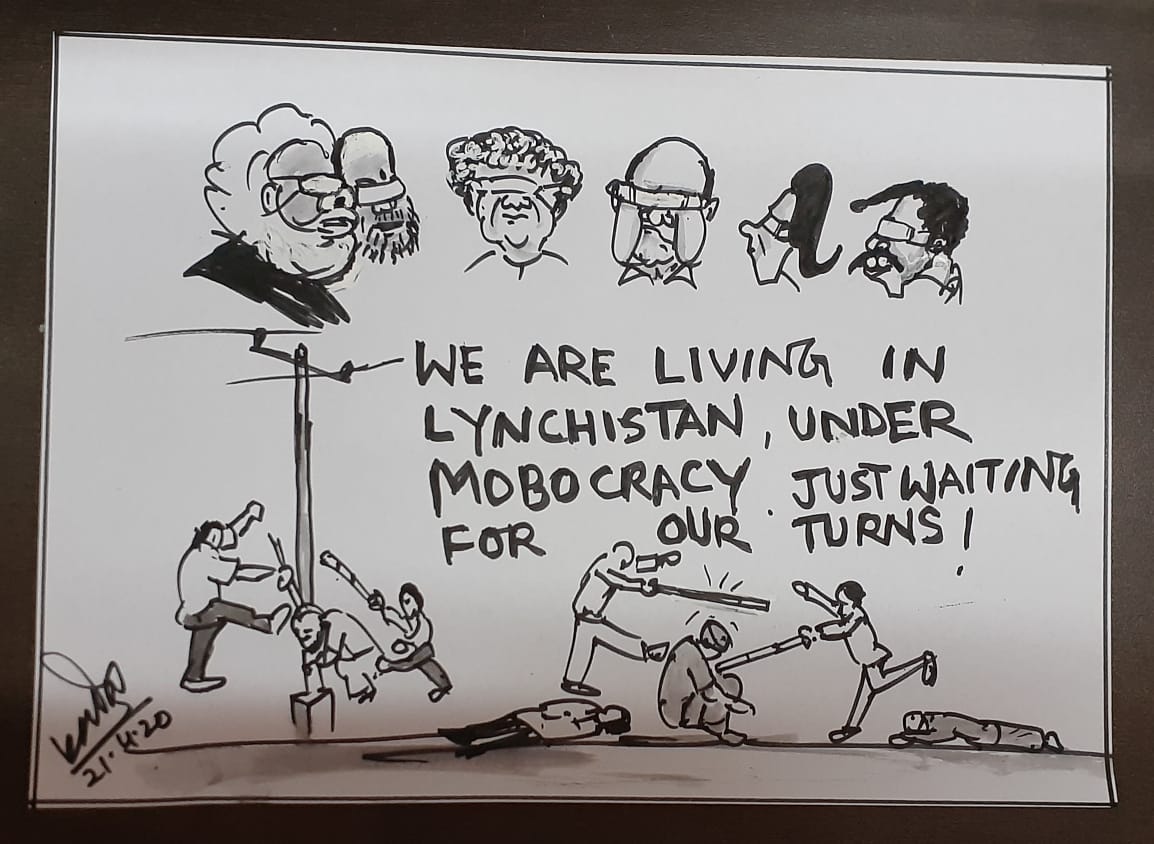 WE ARE LIVING IN
LYNCHISTAN, UNDER
MOBOCRACY. JUST WAITING
FOR OUR TURNS!
21.4.20